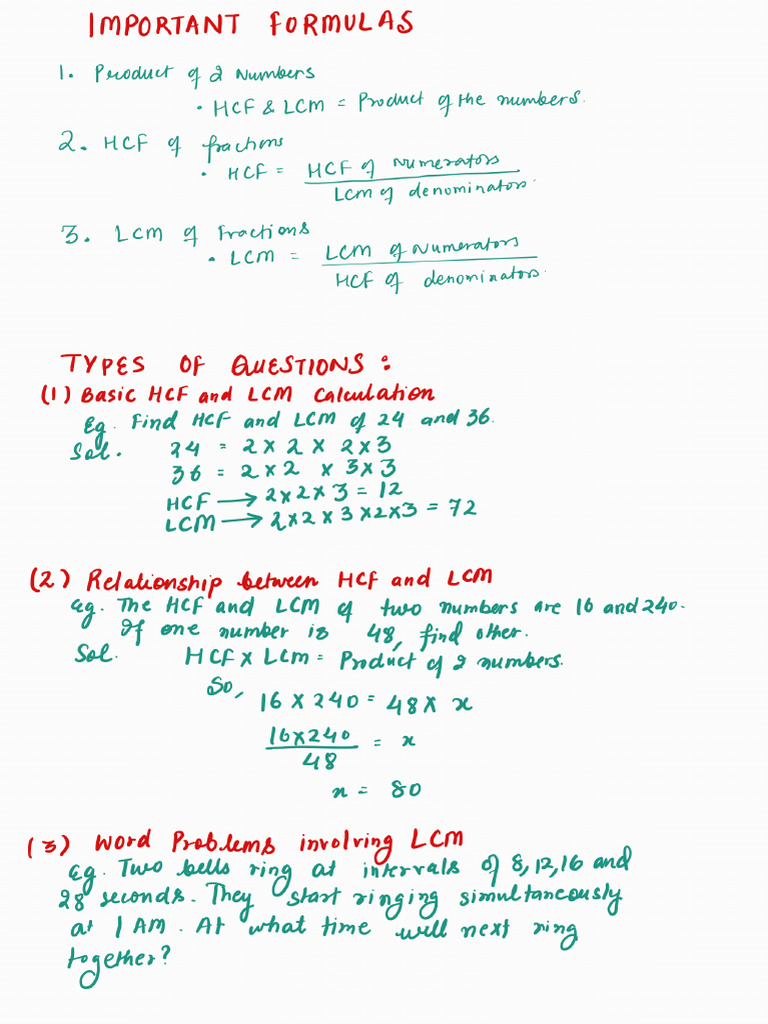 IMPORTANT FORMULAS
1. Product of 2 Numbers
• HCF & LCM = Product of the numbers.
2. HCF of fractions
• HCF = HCF of Numerators / LCM of denominators.
3. LCM of Fractions
• LCM = LCM of Numerators / HCF of denominators.
TYPES OF QUESTIONS :
(1) Basic HCF and LCM Calculation
Eg. Find HCF and LCM of 24 and 36.
Sol. 24 = 2 x 2 x 2 x 3
36 = 2 x 2 x 3 x 3
HCF → 2 x 2 x 3 = 12
LCM → 2 x 2 x 3 x 2 x 3 = 72
(2) Relationship between HCF and LCM
Eg. The HCF and LCM of two numbers are 16 and 240.
If one number is 48, find other.
Sol. HCF x LCM = Product of 2 numbers.
So,
16 x 240 = 48 x x
16 x 240 / 48 = x
x = 80
(3) Word Problems involving LCM
Eg. Two bells ring at intervals of 8, 12, 16 and
28 seconds. They start ringing simultaneously
at 1 AM. At what time will next ring
together?